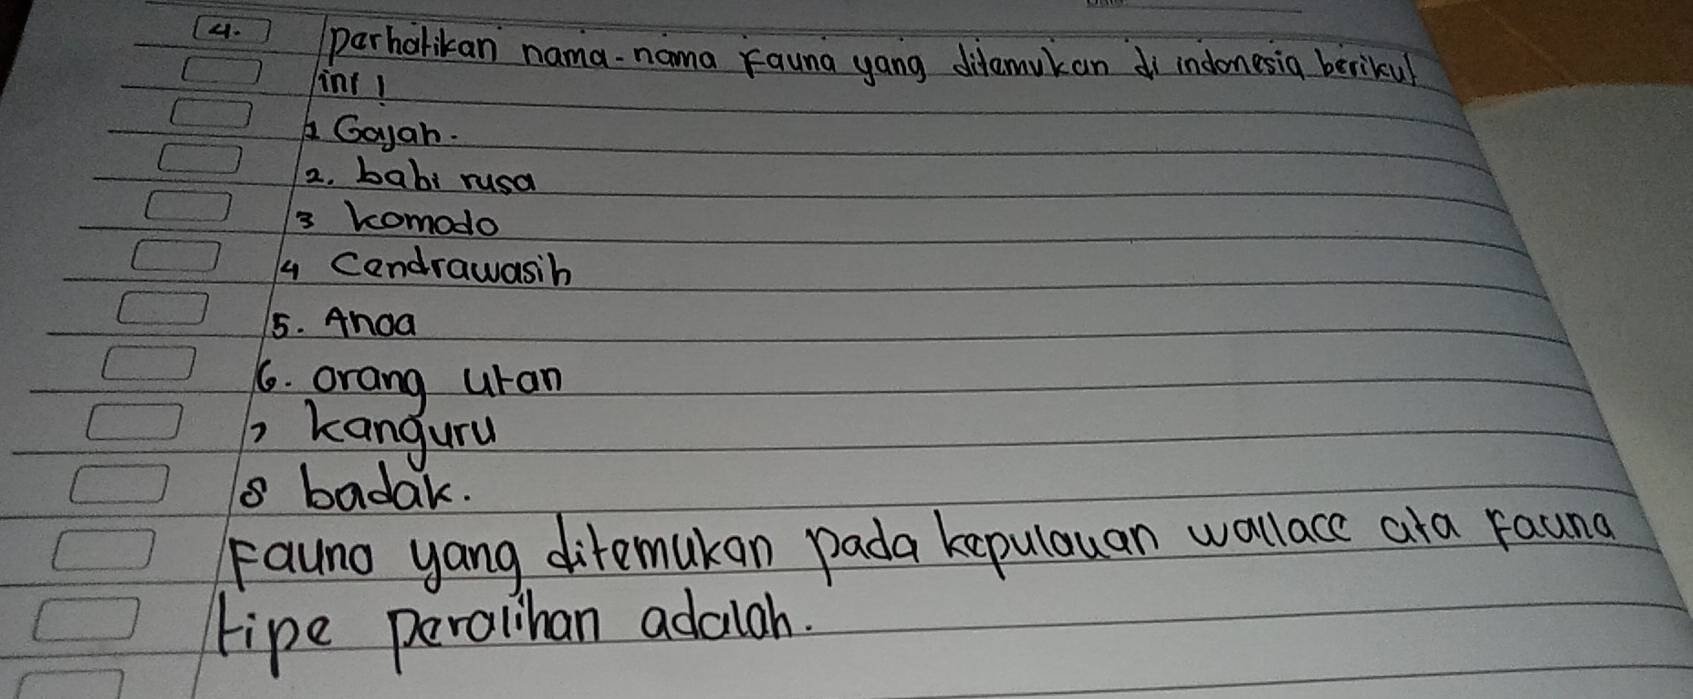 4. perhatikan nama-nama fauna yang ditemukan di indonesia berikut
ini !
1 Gajah.
2. babi rusa
3 komodo
4 Cendrawasih
5. Anoa
6. orang utan
7 kanguru
8 badak.
Fauna yang ditemukan pada kepulauan wallace ata fauna
tipe peralihan adalah.